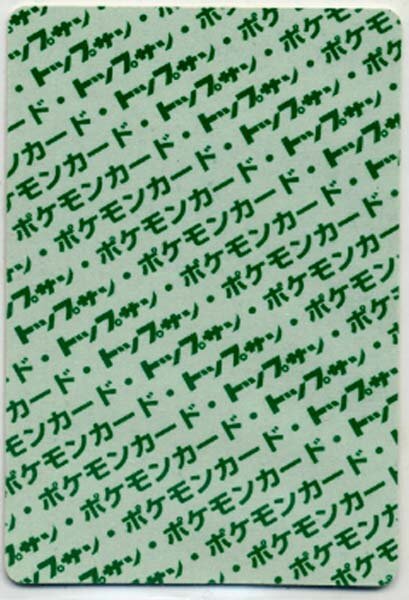 ・トップサン・ポケ
ード・トップサン・ポケモン
ンカード・トップサン・ポケモンカ
ケモンカード・トップサン・ポケモ
ポケモンカード・トップサン・ポケ
・ポケモンカード・トップサン・
サン・ポケモンカード・トップサン
ップサン・ポケモンカード・トップ
トップサン・ポケモンカード・ト
・トップサン・ポケモンカード・
ド・トップサン・ポケモンカード
カード・トップサン・ポケモン
モンカード・トップサン・ポケ
ポケモンカード・トップサン・
・ポケモンカード・トップサン
サン・ポケモンカード・トップ
トップサン・ポケモンカード・
トップサン・ポケモンカード
・ポケモン